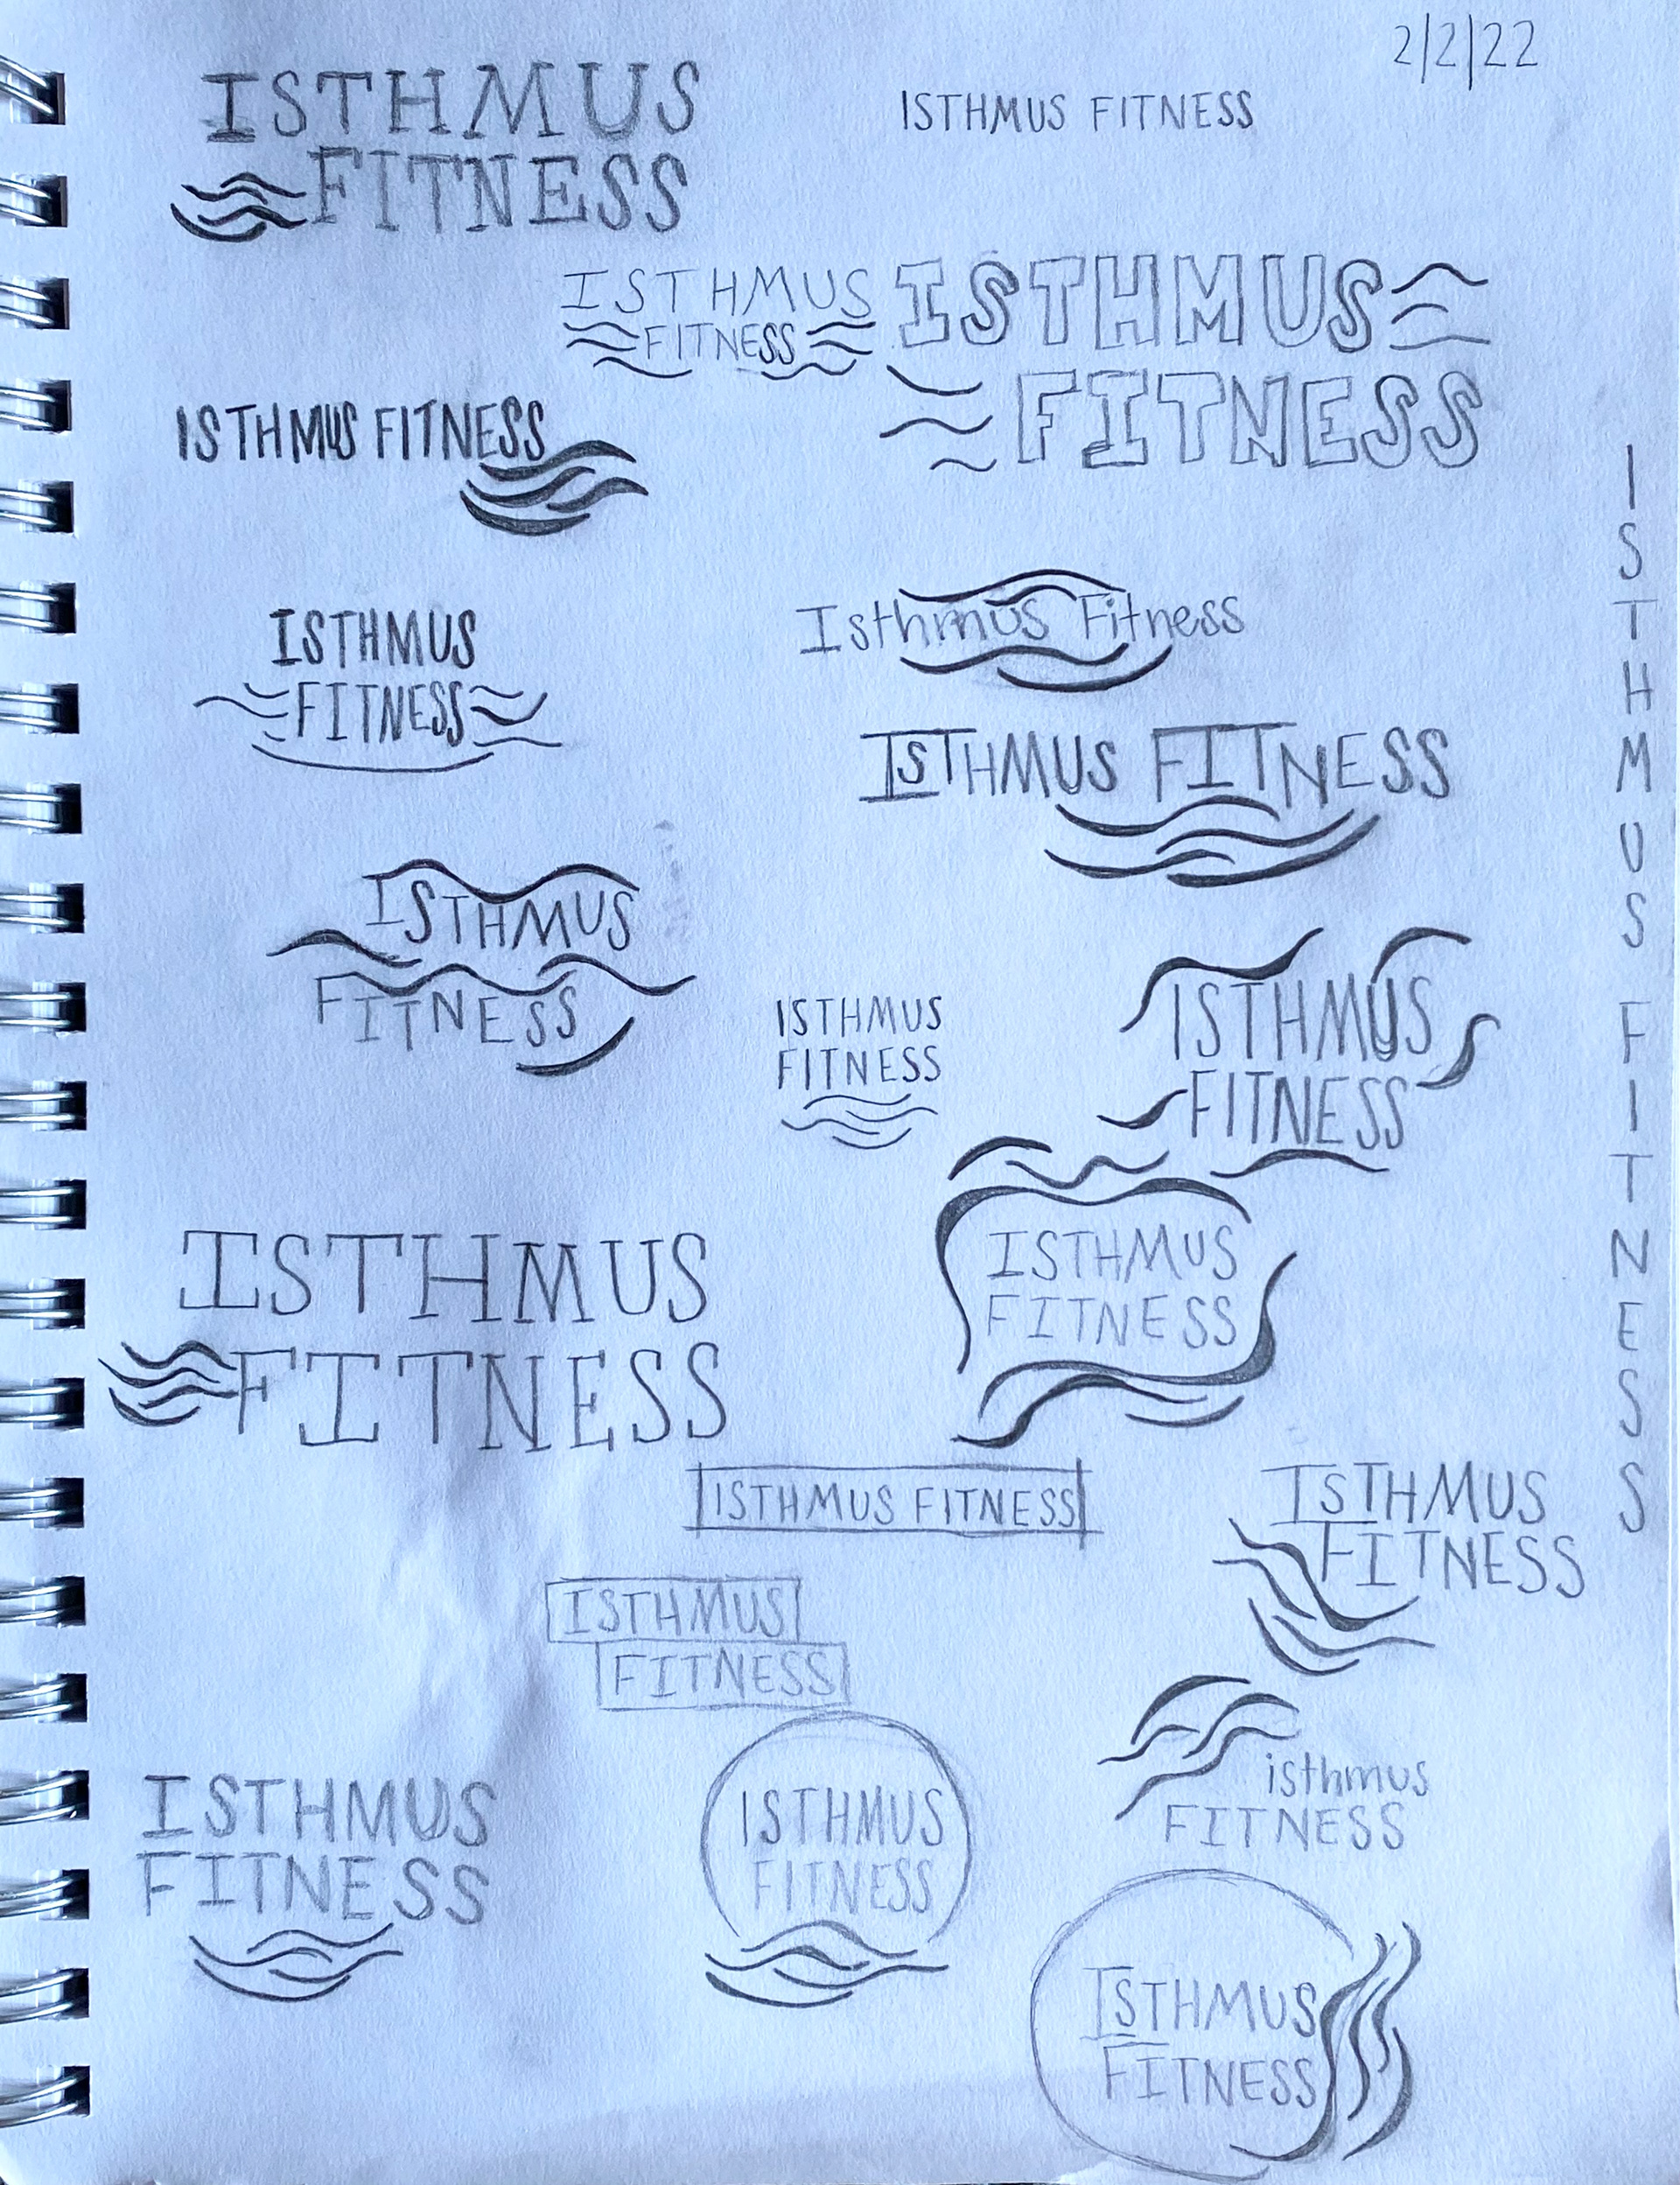 2/2/22
ISTHMUS
FITNESS
ISTHMUS FITNESS
ISTHMUS
FITNESS
ISTHMUS
FITNESS
ISTHMUS FITNESS
ISTHMUS
FITNESS
Isthmus Fitness
ISTHMUS FITNESS
ISTHMUS
FITNESS
ISTHMUS
FITNESS
ISTHMUS
FITNESS
ISTHMUS
FITNESS
ISTHMUS
FITNESS
ISTHMUS FITNESS
ISTHMUS
FITNESS
ISTHMUS
FITNESS
isthmus
FITNESS
ISTHMUS
FITNESS
ISTHMUS
FITNESS
ISTHMUS
FITNESS
ISTHMUS FITNESS